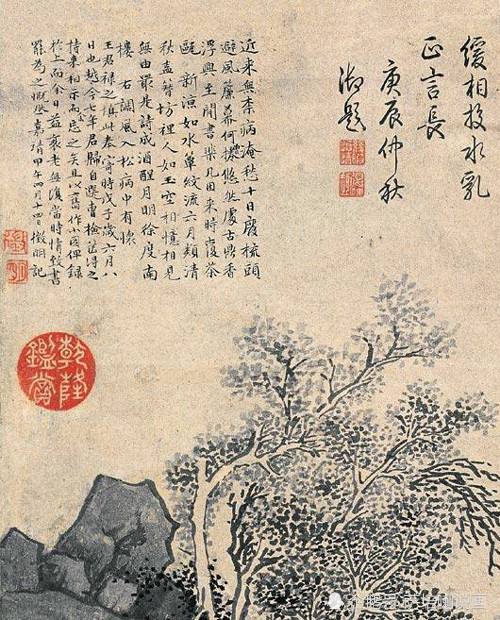 緩相投水乳
正言長
庚辰仲秋
御題
近來無奈病淹愁十日廢梳頭
避風簾幕何悠然處古鼎香
浮興至閒書棐几困來時覆茶
甌 新涼如水簟紋流六月類清
秋盍簪坊裡人如玉空相憶相見
無由最是詩成酒醒月明徐度南
樓 右調風入松病中有懷
王君祿之填此奉寄時戊子歲六月八
日也越今七年君歸自選曹檢舊得之
持來相示而惡之矣且以舊作小圖俾錄
於上而余日益衰老無復當時情致書
罷為之慨然嘉靖甲午四月十四日徵明記
乾隆鑑賞